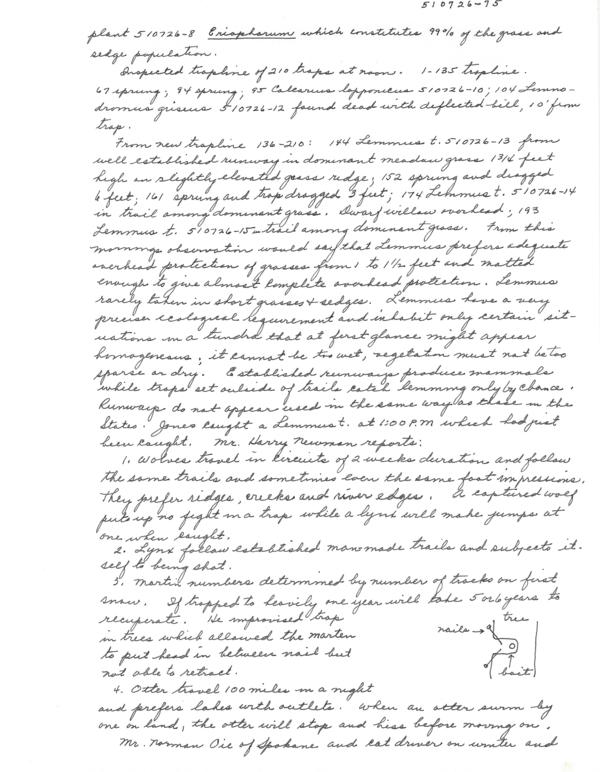 510726-75
plant 510726-8 Eriophorum which constitutes 99% of the grass and
sedge population.
Inspected trapline of 210 traps at noon. 1-135 trapline.
67 sprung; 94 sprung; 95 Calcarius lapponicus 510726-10; 104 Limno-
dromus griseus 510726-12 found dead with deflected bill, 10' from
trap.
From new trapline 136-210: 144 Lemmus t. 510726-13 from
well established runway in dominant meadow grass 13/16 feet
high on slightly elevated grass ridge; 152 sprung and dragged
6 feet; 161 sprung and trap dragged 3 feet; 174 Lemmus t. 510726-14
in trail among dominant grass. Dwarf willow overhead; 193
Lemmus t. 510726-15 - trail among dominant grass. From this
mornings observation would say that Lemmus prefers adequate
overhead protection of grasses from 1 to 1½ feet and matted
enough to give almost complete overhead protection. Lemmus
rarely taken in short grasses & sedges. Lemmus have a very
precise ecological requirement and inhabit only certain sit-
uations in a tundra that at first glance might appear
homogeneous; it cannot be too wet, vegetation must not be too
sparse or dry. Established runways produce mammals
while traps set outside of trails catch lemming only by chance.
Runways do not appear used in the same way as those in the
States. Jones caught a Lemmus t. at 1:00 P.M which had just
been caught. Mr. Harry Newman reports:
1. Wolves travel in circuits of 2 weeks duration and follow
the same trails and sometimes even the same foot impressions.
They prefer ridges, creeks and river edges. A captured wolf
puts up no fight in a trap while a lynx will make jumps at
one when caught.
2. Lynx follow established man made trails and subjects it-
self to being shot.
3. Martin numbers determined by number of tracks on first
snow. If trapped to heavily one year will take 5 or 6 years to
recuperate. He improvised trap
in trees which allowed the marten
to put head in between nail but
not able to retract.
nails
tree
bait
4. Otter travel 100 miles in a night
and prefers lakes with outlets. When an otter swim by
one on land, the otter will stop and hiss before moving on.
Mr. Norman Oie of Spokane and cat driver on winter and